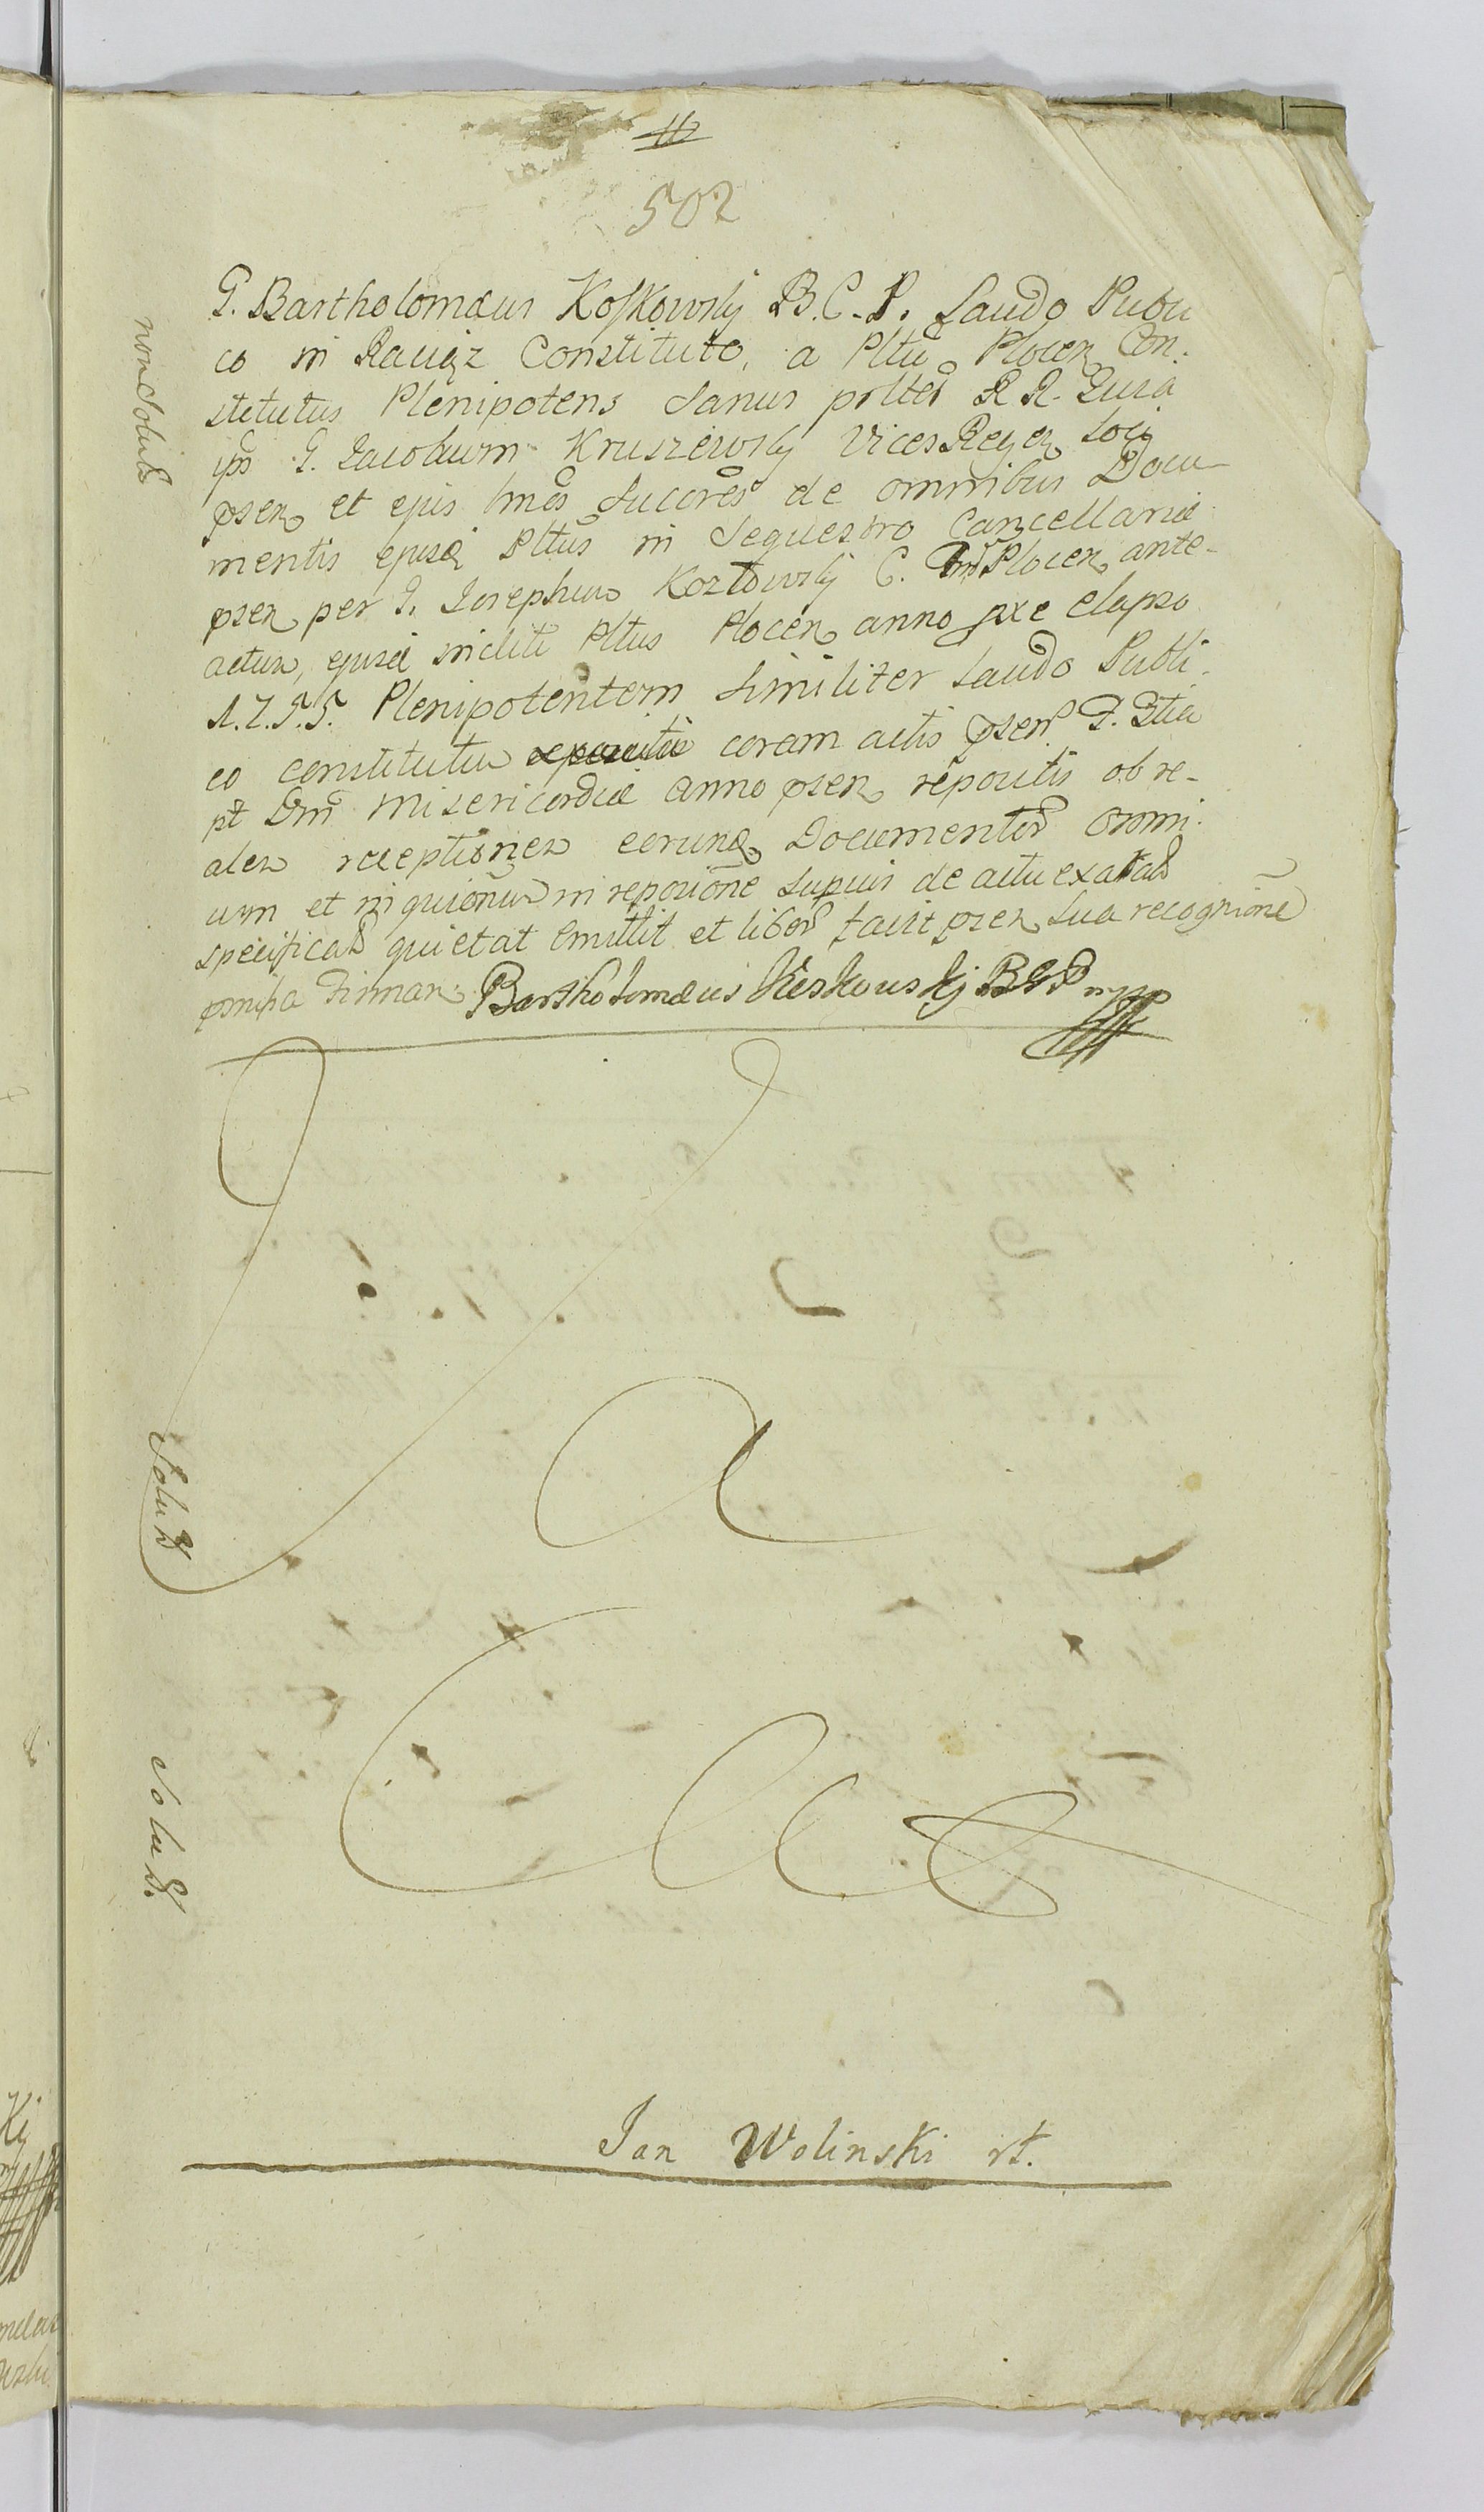 502
G. Bartholomæus Koskowskj B.C.P. Laudo Publi
co in Raciąz Constituto, a Pltũ Plocen Con-
stitutus Plenipotens Sanus R R. Quia
G. Jacobum Kruszewskj Vices Regen Loci
psen et ejus de omnibus Docu-
mentis ejusd Pltus in Sequestro Cancellariæ
psen per G. Josephum Kozłowskj C. Plocen ante-
actum, ejusd incliti Pltus Plocen anno pxe elapso
1.7.5.5. Plenipotentem Similiter Laudo Publi-
co constitutum coram actis psen F.
pt Dm Misericordiæ anno psen repositis ob re-
alem receptionem eorund Documentor omni-
um et in repoõne de actu
specificat quietat emittit et liber facit psen sua recognine
Bartholomæus Koskowskj BCP mpp
non Solut
Solut
Solut.
Jan Wolinski rt.